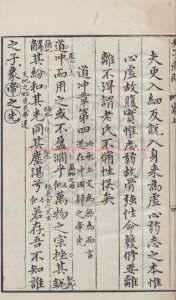 夫更入細反說入身來為虛心弱志之本惟
心虛故腹實惟志弱故骨強性命雙修要離
離不得謂老氏不備性悞矣
道冲章第四 此承上文為無為而言
道冲而用之或不盈淵乎似萬物之宗挫其銳
解其紛和其光同其塵湛兮似若存吾不知誰
之子象帝之先